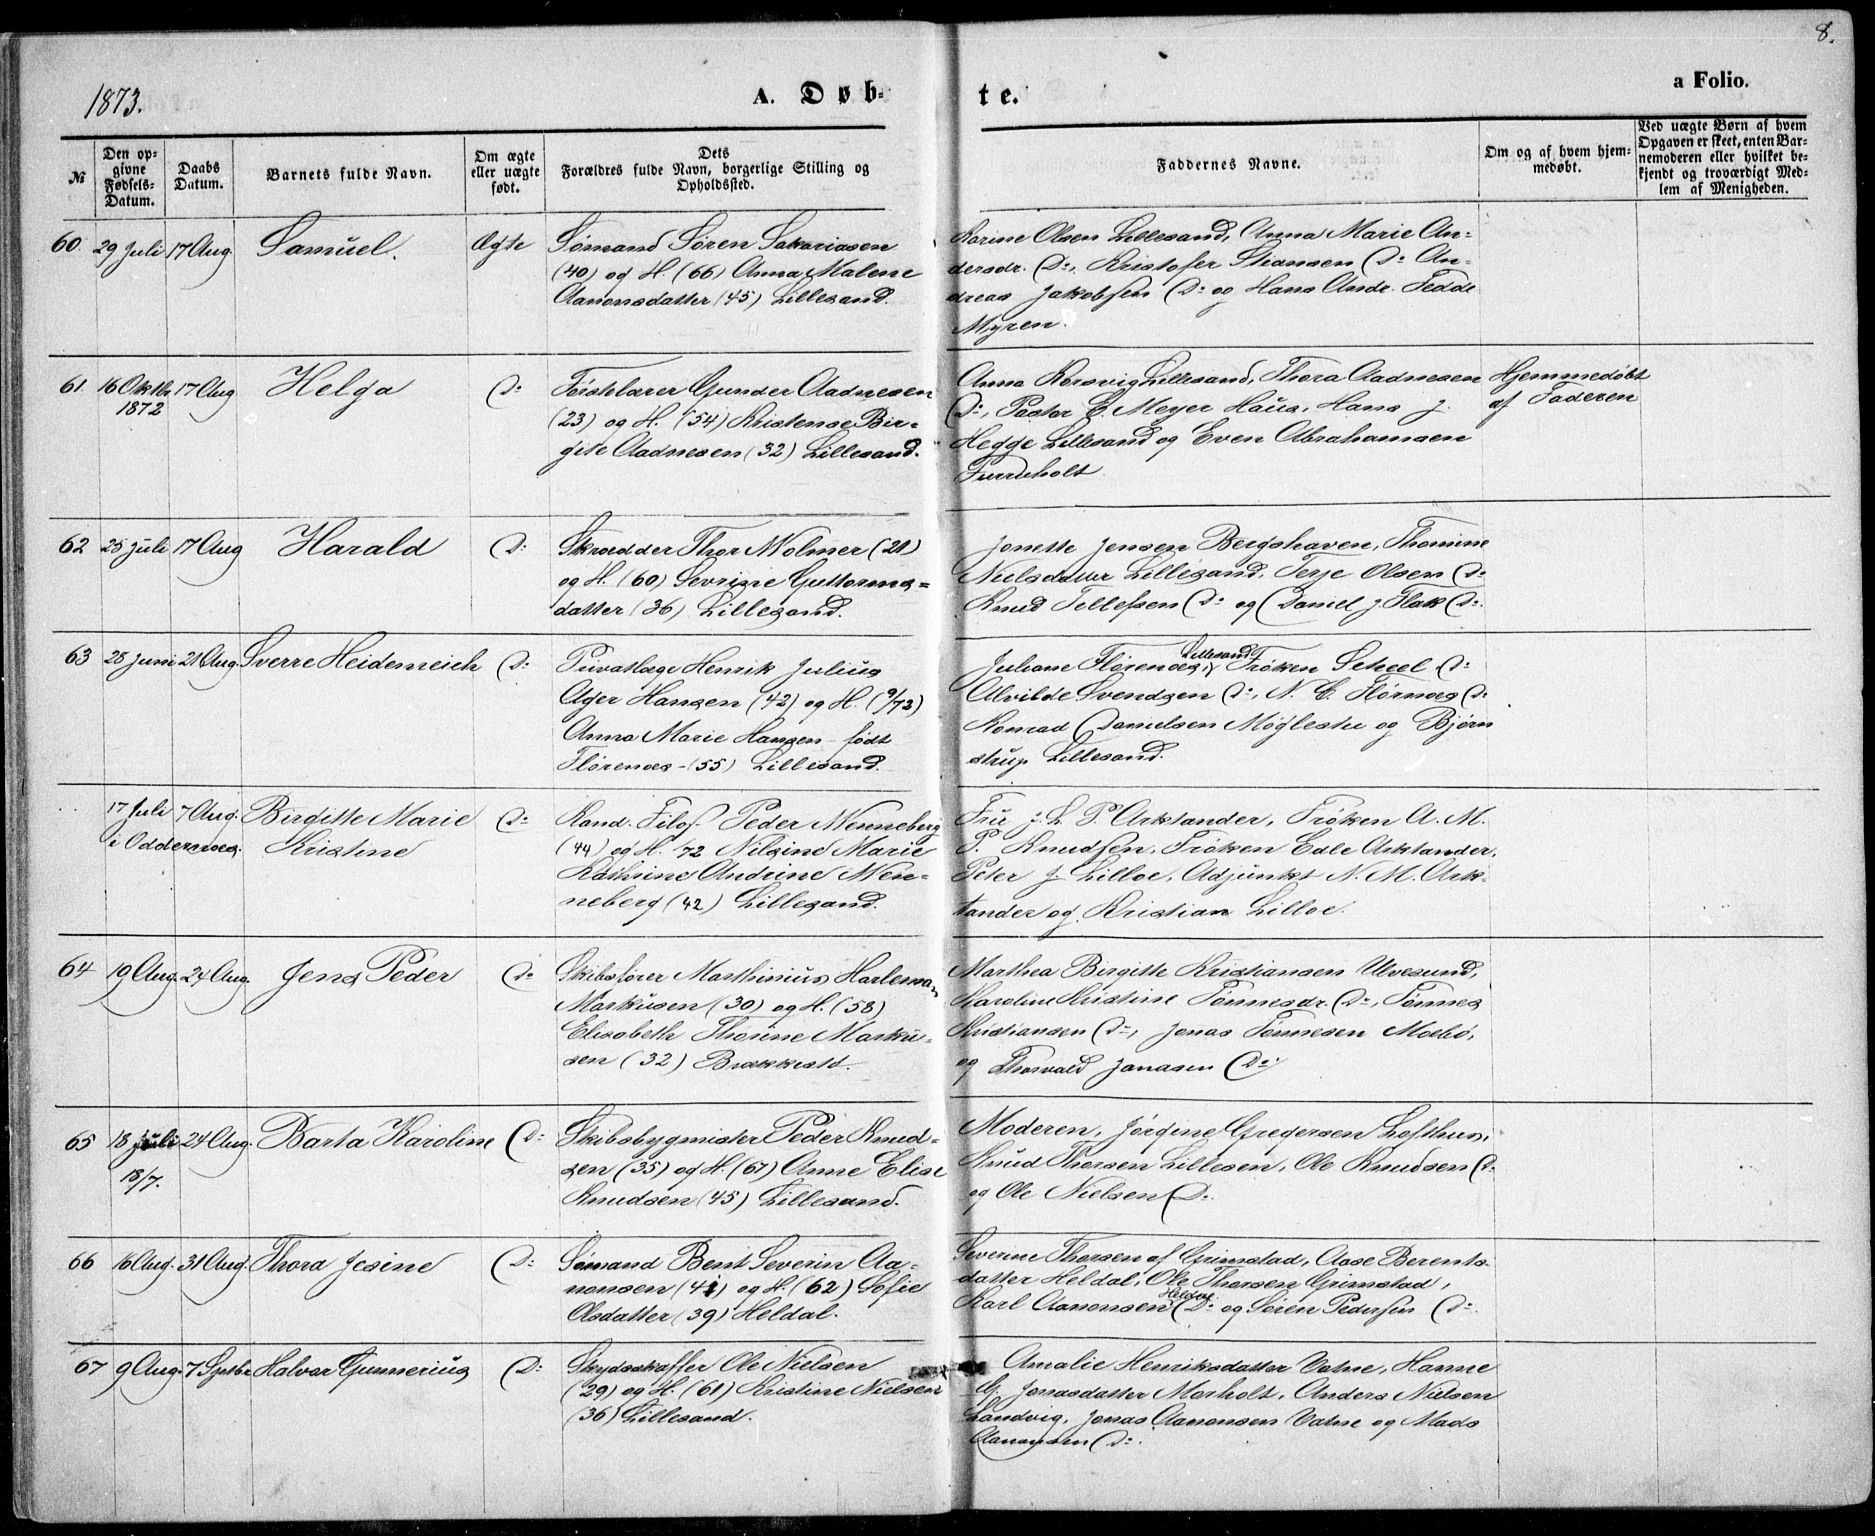 8.
1873.
A. Døb-
te.
a Folio.
№
Den op-
givne
Fødsels-
Datum.
Daabs
Datum.
Barnets fulde Navn.
Om ægte
eller uægte
født.
Dets
Forældres fulde Navn, borgerlige Stilling og
Opholdssted.
Faddernes Navne.
Om og af hvem hjem-
medøbt.
Ved uægte Børn af hvem
Opgaven er skeet, enten Bar-
nemoderen eller hvilket be-
kjendt og troværdigt Med-
lem af Menigheden.
60. 29 Juli 17 Aug. Samuel. Ægte
Sømand Søren Sakariasen
(40) og H. (66) Anna Malene
Aanonsdatter (45) Lillesand.
Karine Olsen Lillesand, Anna Marie An-
dersdr. Do, Kristofer Stiansen Do An-
dreas Jakobsen Do og Hans Andr. Fedde
Myren.
61. 16 Oktbr 17 Aug Helga Do
1872
Førstelærer Gunder Aadnesen
(23) og H. (54) Kristense Bir-
gite Aadnesen (32) Lillesand.
Anna Korsvig Lillesand, Thora Aadnesen
Do, Pastor E. Meyer Haus, Hans J.
Hegge Lillesand og Even Abrahamsen
Furreholt.
Hjemmedøbt
af Faderen
62 25 Juli 17 Aug Harald Do
Skrædder Thor Molmer (21)
og H. (60) Sevrine Guttorms-
datter (36) Lillesand.
Jonette Jensen Bergshaven, Thomine
Nielsdatter Lillesand, Terje Olsen Do
Knud Tellefsen Do og Daniel J Flak Do.
63 28 Juni 21 Aug. Sverre Heidenreich Do
Privatlæge Henrik Julius
Ager Hansen (42) og H. (9/73)
Anna Marie Hansen - født
Flørenæs - (55) Lillesand.
Juliane Flørenæs, Lillesand Frøken Scheel Do
Alvilde Svendsen Do, N. C. Flørnæs Do
Konrad Danielsen Møglestu og Bjørn
strup Lillesand.
17 Juli 7 Aug. Birgitte Marie Do
i Oddernæs. Kristine
Kand. Filos. Peder Wenneberg
(44) og H. 72 Nilsine Marie
Kathrine Andrine Wen-
neberg (42) Lillesand.
Fru J. L. P. Arktander, Frøken A. M.
P. Knudsen, Frøken Edle Arktander,
Peter J. Lilloe, Adjunkt N. M. Ark-
tander og Kristian Lilloe.
64 19 Aug. 24 Aug. Jens Peder Do
Skibsfører Marthinius Harleman
Markusen (30) og H. (58)
Elisabeth Thomine Marku-
sen (32) Brækkestø.
Marthea Birgitte Kristiansen Ulvesund,
Karoline Kristine Tønnesdr. Do, Tønnes
Kristiansen Do, Jonas Tønnesen Molbo,
og Thorvald Jonasen Do.
65 18 Juli 24 Aug. Barta Karoline Do
18/7.
Skibsbygmister Peder Knud-
sen (35) og H. (67) Anne Elise
Knudsen (45) Lillesand.
Moderen, Jørgine Gregersen Lofthus,
Knud Thorsen Lillesen, Ole Knudsen Do
og Ole Nielsen Do.
66 16 Aug. 31 Aug. Thora Jesine Do
Sømand Bent Severin Aa-
nonsen (41) og H. (62) Sofie
Olsdatter (39) Heldal.
Severine Thorsen af Grimstad, Aase Berents
datter Heldal, Ole Thorsen Grimstad,
Karl Aanonsen Heldal Do og Søren Pedersen Do
67 9 Aug. 7 Septbr Halvor Gunnerius Do
Skydsskaffer Ole Nielsen
(29) og H. (61) Kristine Nielsen
(36) Lillesand.
Amalie Henriksdatter Vatne, Hanne
G. Jonasdatter Morholt, Anders Nielsen
Landvig, Jonas Aanonsen Vatne og Mads
Aanonsen Do.